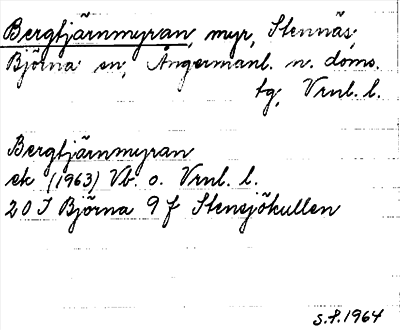 Bergtjärnmyran, myr, Stennäs,
Björna sn, Ångermanl. n. doms.
tg, Vrnl. l.
Bergtjärnmyran
ek (1963) Vb. o. Vrnl. l.
20 I Björna 9 f Stensjökullen
S.F. 1964